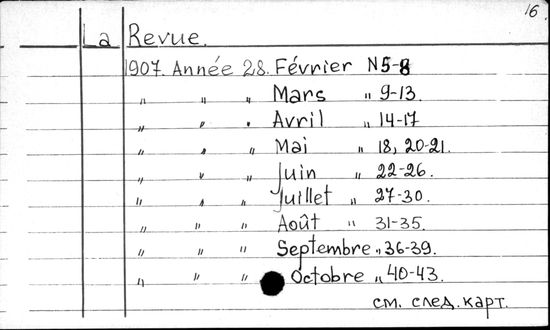 16
La Revue.
1907. Année 28. Février N5-8
" " " Mars " 9-13.
" " " Avril " 14-17
" " " Mai " 18, 20-21.
" " " Juin " 22-26.
" " " Juillet " 27-30.
" " " Août " 31-35.
" " " Septembre " 36-39.
" " " Octobre " 40-43.
см. след. карт.